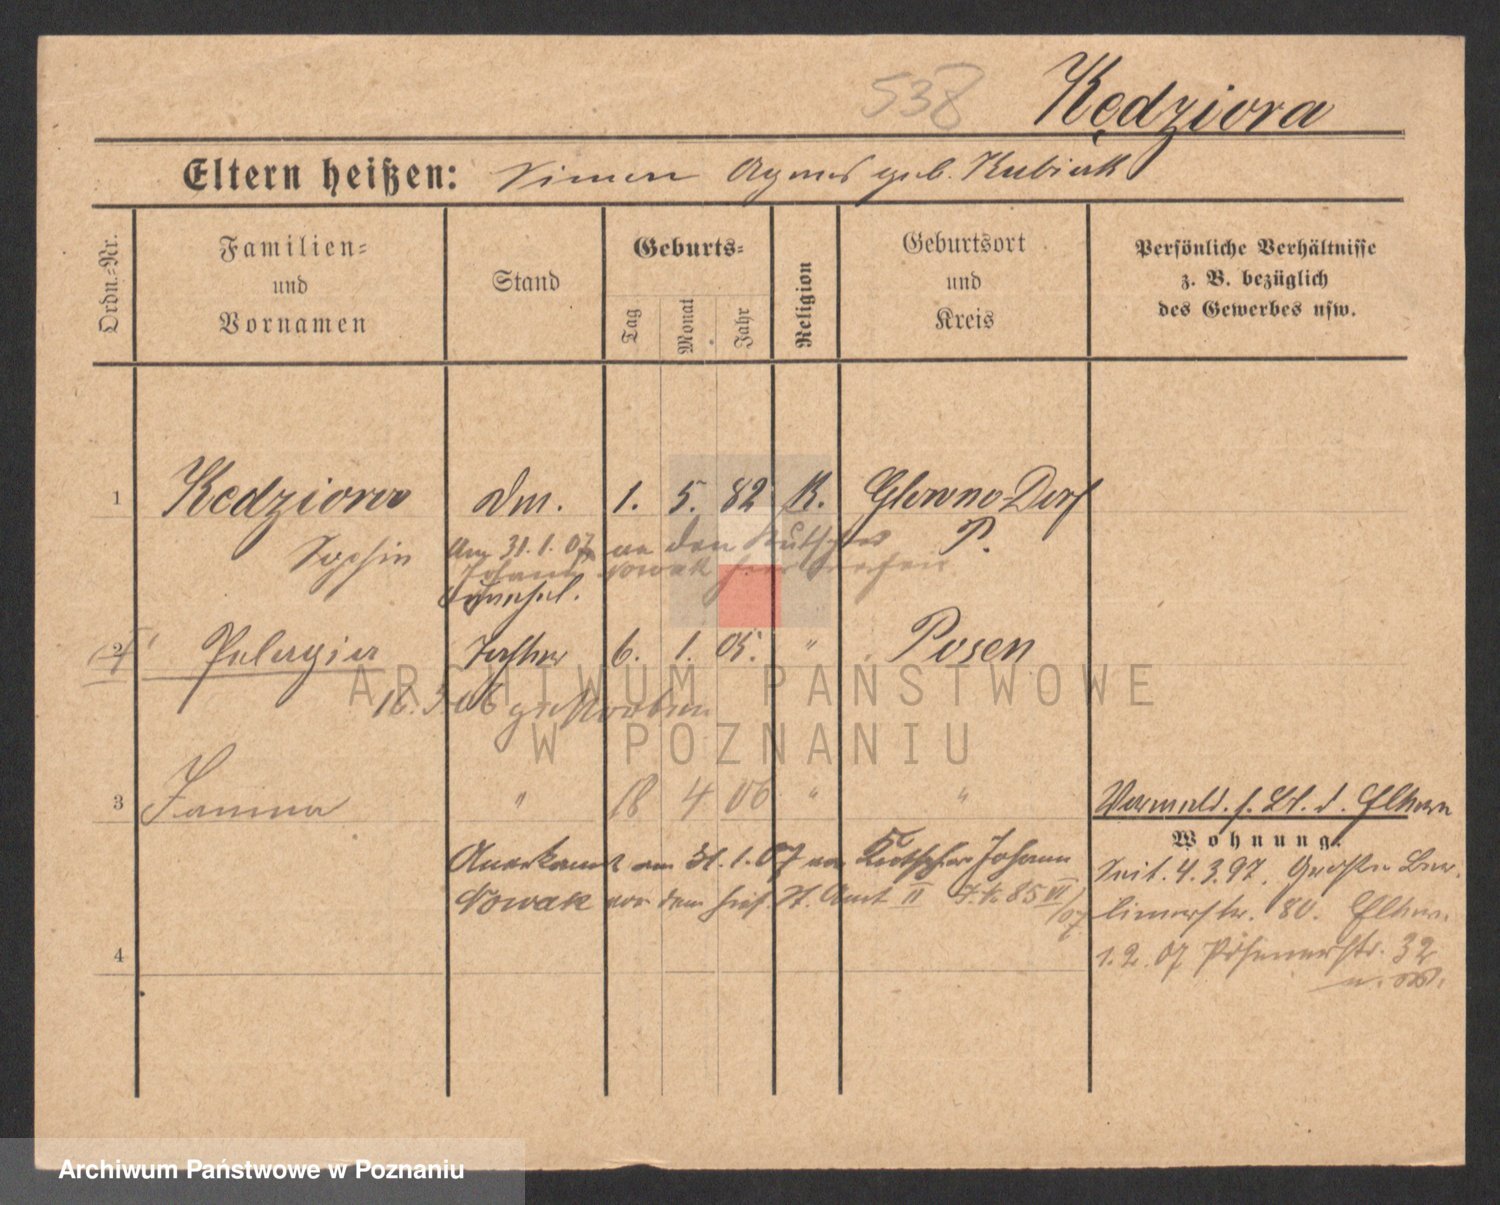 538 Kędziora
Eltern heißen: Simon Agnes geb. Kubiak
Ordn.=Nr.
Familien=
und
Vornamen
Stand
Geburts=
Tag
Monat
Jahr
Religion
Geburtsort
und
Kreis
Persönliche Verhältnisse
z. B. bezüglich
des Gewerbes usw.
1 Kedziora dm. 1. 5. 82 K. Glowno-Dorf
Sophie P.
Am 31. 1. 07 an den Kutscher
Johann Nowak hier
2 Pelagia Tochter 6. 1. 05. " Posen
18. 3. 06 gestorben
3 Janina " 18 4 06 " "
Anerkannt am 31. 1. 07 von Kutscher Johann
Nowak vor dem hies. St. Amt II 85 VI/07
4
d. Eltern
Wohnung.
Seit. 4. 3. 97. Große Ber-
linerstr. 80. Eltern.
1. 2. 07 Posenerstr. 32
ARCHIWUM PAŃSTWOWE
W POZNANIU
Archiwum Państwowe w Poznaniu